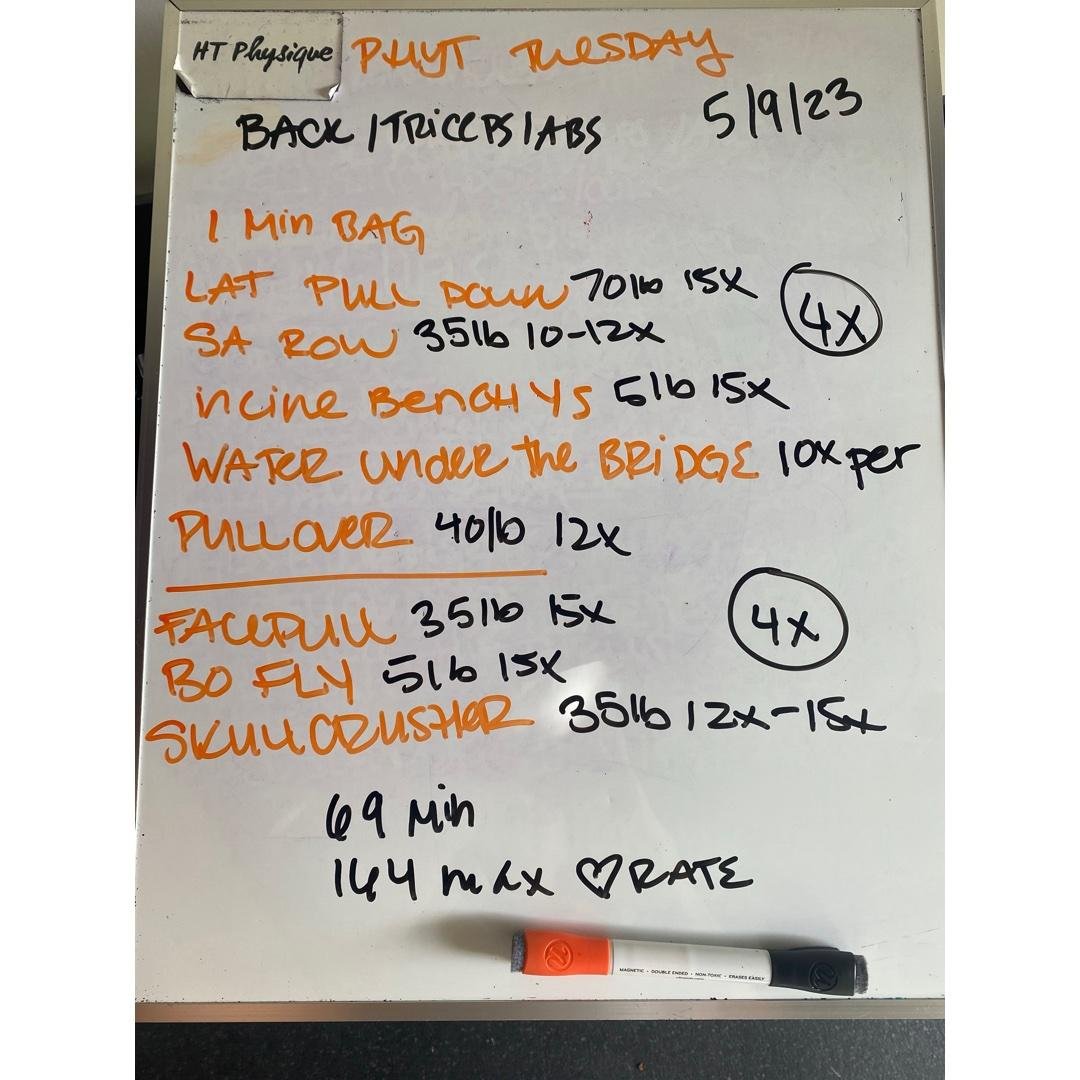 HT Physique
PHYT TUESDAY
5/9/23
BACK/TRICEPS/ABS
1 Min BAG
LAT PULL DOWN 70lb 15X
4X
SA ROW 35lb 10-12X
incine BENCH YS 5lb 15X
WATER under the BRiDGE 10x per
PULLOVER 40lb 12X
FACEPULL 35lb 15X
4X
BO FLY 5lb 15X
SKULLCRUSHER 35lb 12x-15x
69 Min
164 max ♡ RATE
MAGNETIC • DOUBLE ENDED • NON-TOXIC • ERASES EASILY